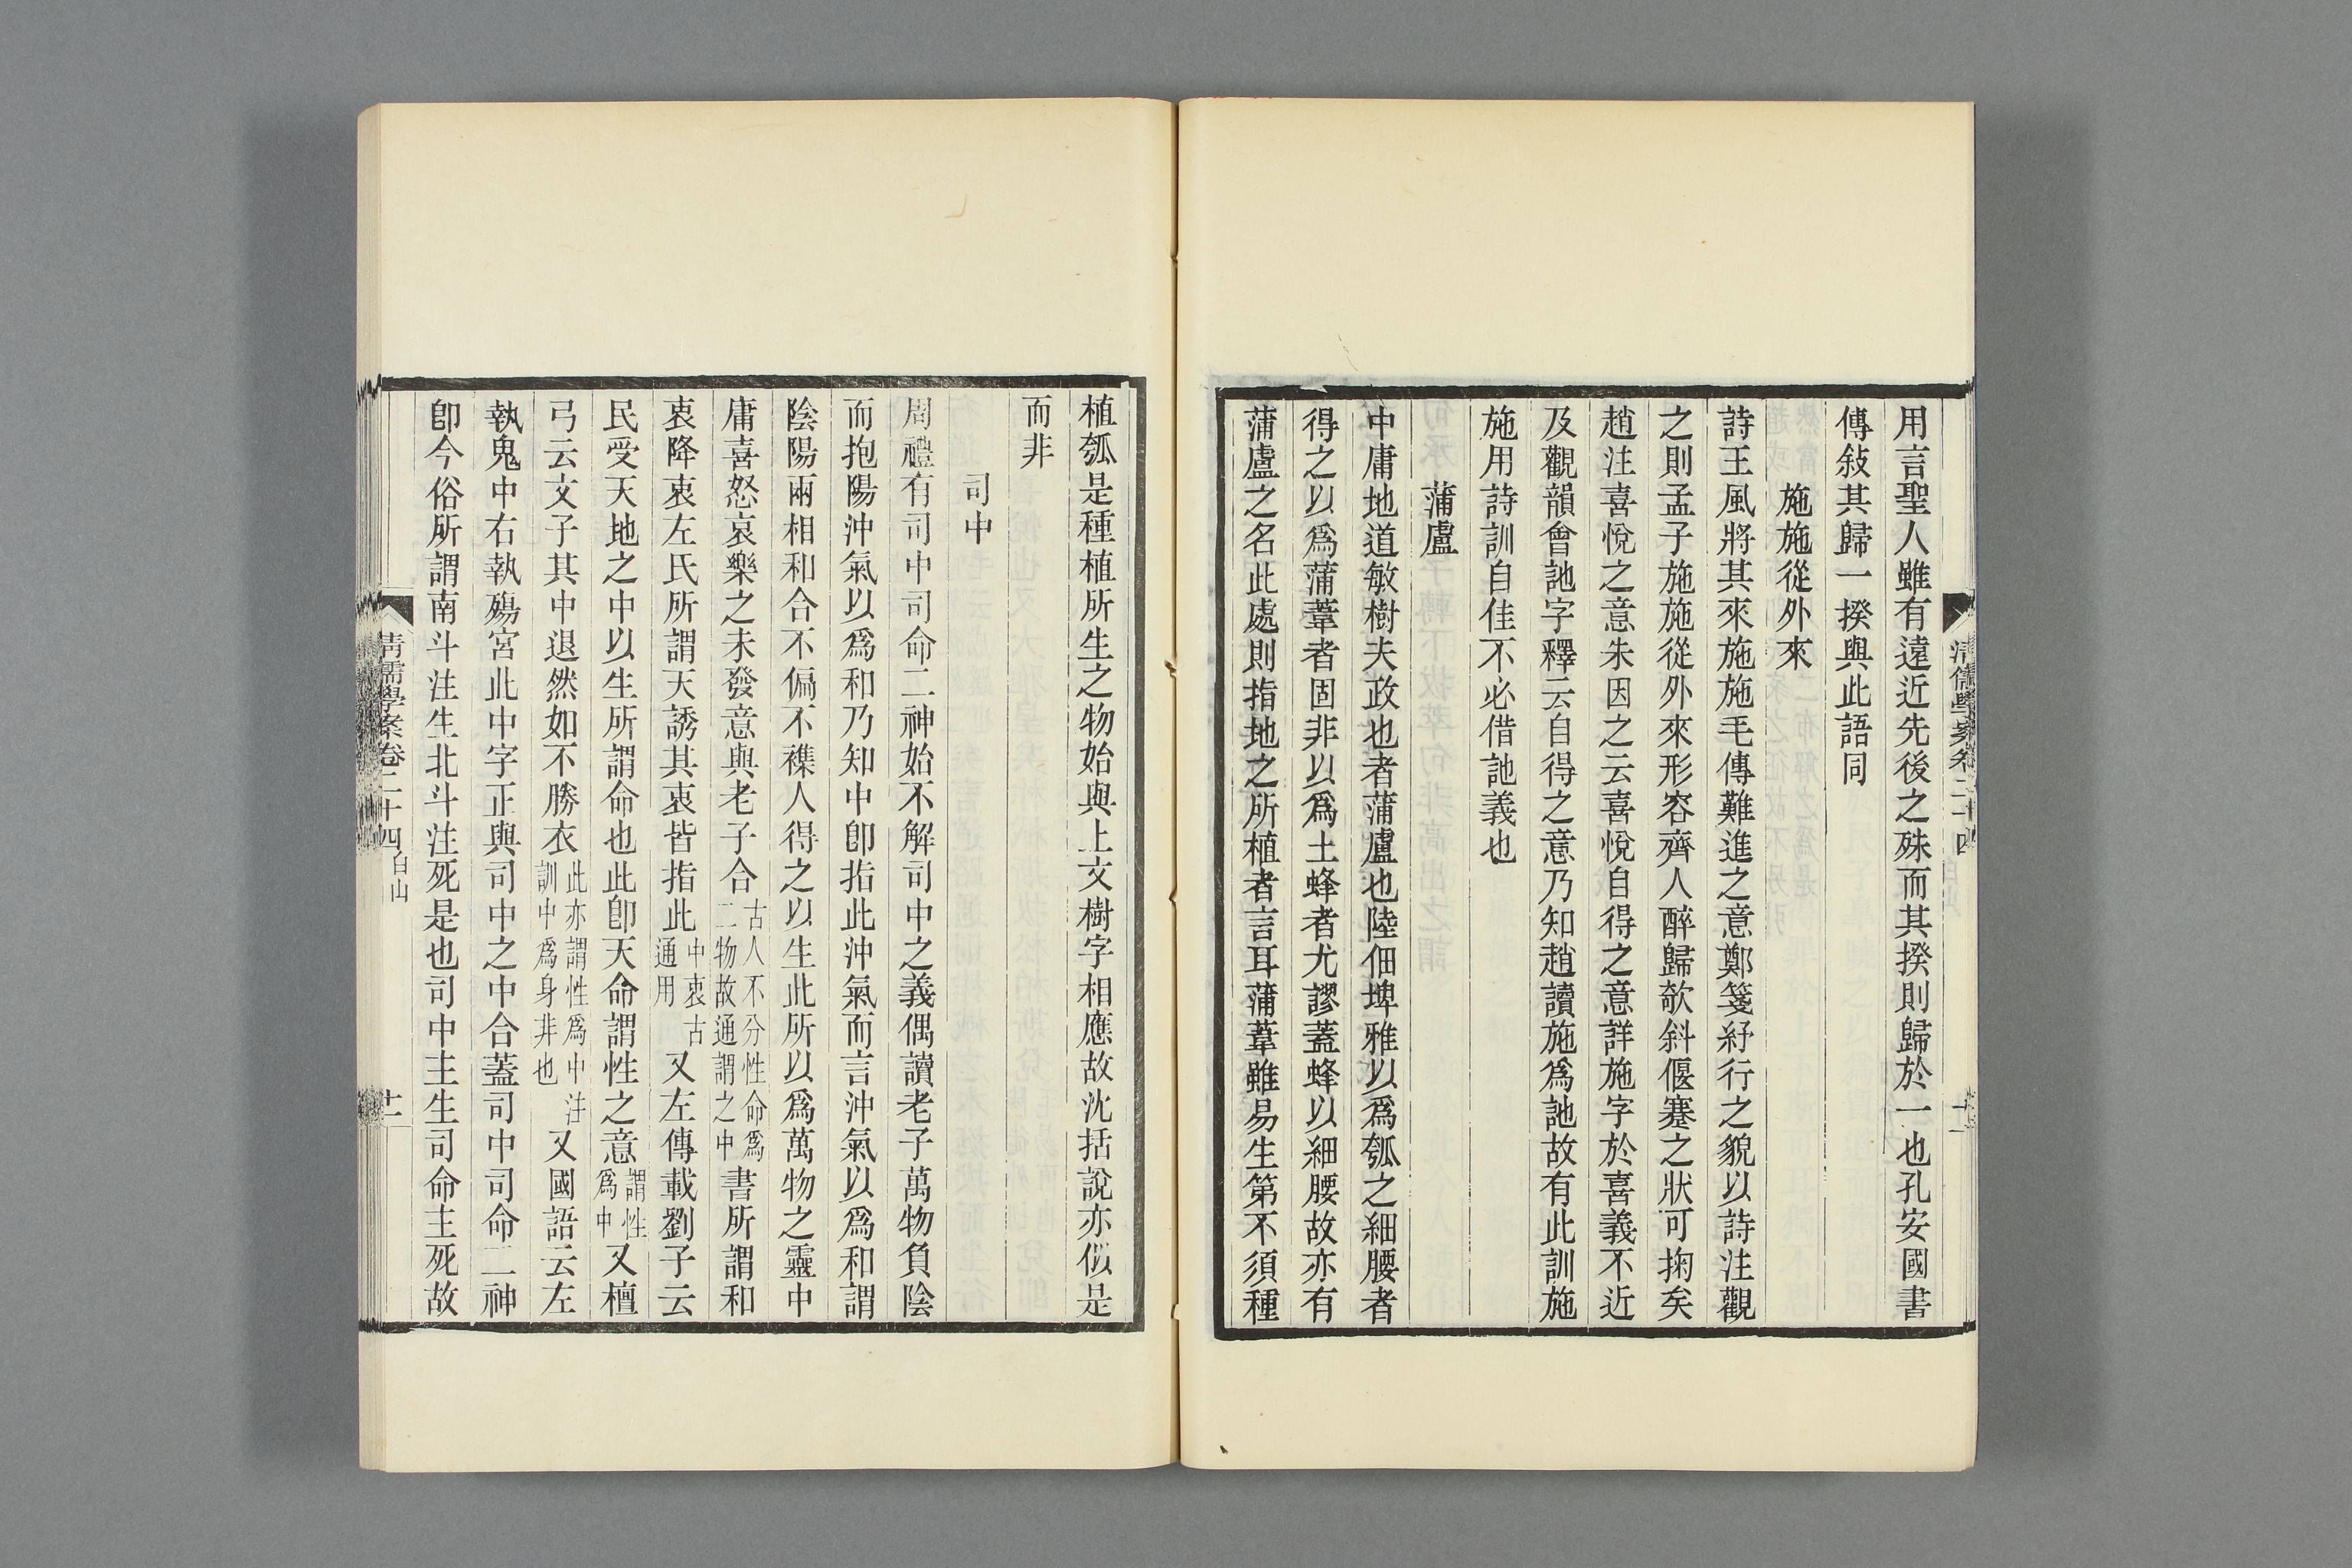 用言聖人雖有遠近先後之殊而其揆則歸於一也孔安國書
傳敍其歸一揆與此語同
施施從外來
詩王風將其來施施毛傳難進之意鄭箋紓行之貌以詩注觀
之則孟子施施從外來形容齊人醉歸欹斜偃蹇之狀可掬矣
趙注喜悅之意朱因之云喜悅自得之意詳施字於喜義不近
及觀韻會訑字釋云自得之意乃知趙讀施爲訑故有此訓施
施用詩訓自佳不必借訑義也
蒲盧
中庸地道敏樹夫政也者蒲盧也陸佃埤雅以爲瓠之細腰者
得之以爲蒲葦者固非以爲土蜂者尤謬蓋蜂以細腰故亦有
蒲盧之名此處則指地之所植者言耳蒲葦雖易生第不須種
植瓠是種植所生之物始與上文樹字相應故沈括說亦似是
而非
司中
周禮有司中司命二神始不解司中之義偶讀老子萬物負陰
而抱陽沖氣以爲和乃知中卽指此沖氣而言沖氣以爲和謂
陰陽兩相和合不偏不襍人得之以生此所以爲萬物之靈中
庸喜怒哀樂之未發意與老子合古人不分性命爲二物故通謂之中書所謂和
衷降衷左氏所謂天誘其衷皆指此中衷古通用又左傳載劉子云
民受天地之中以生所謂命也此卽天命謂性之意謂性爲中又檀
弓云文子其中退然如不勝衣此亦謂性爲中注訓中爲身非也又國語云左
執鬼中右執殤宮此中字正與司中之中合蓋司中司命二神
卽今俗所謂南斗注生北斗注死是也司中主生司命主死故
清儒學案卷二十四 白山
十二